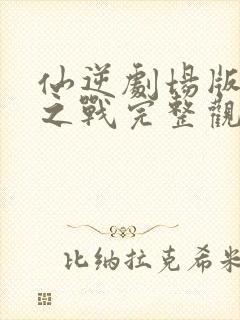 仙逆劇場版
之戰完整觀
比纳拉克希米